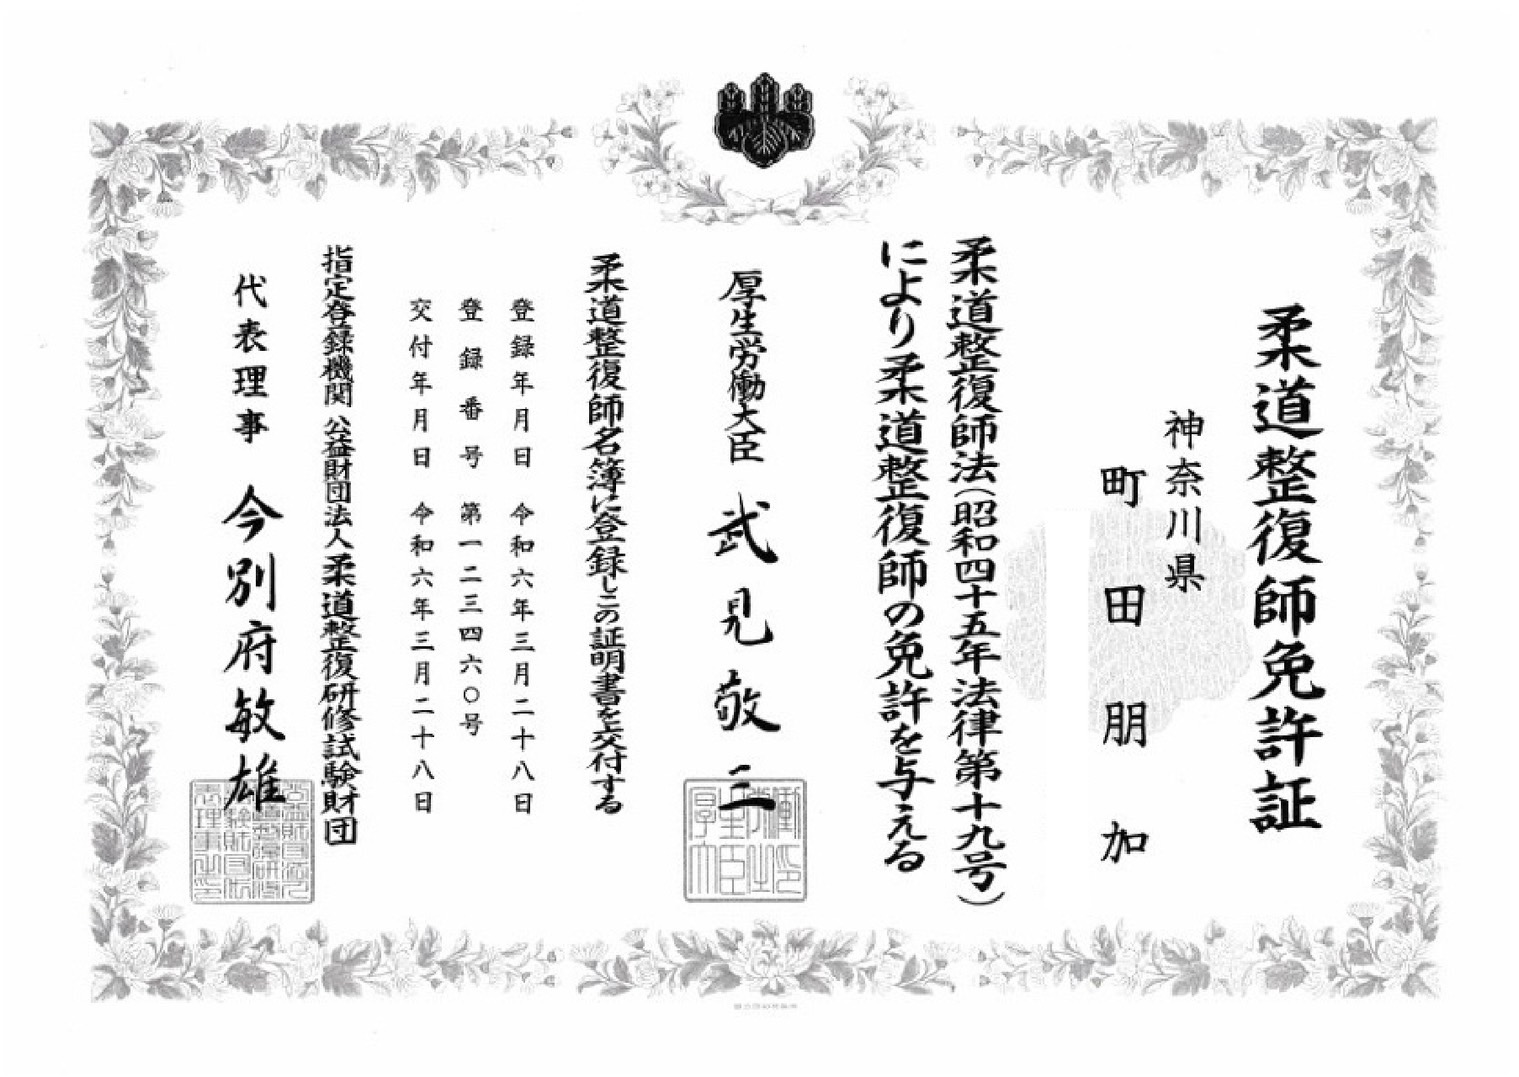 柔道整復師免許証
神奈川県
町田朋加
柔道整復師法(昭和四十五年法律第十九号)
により柔道整復師の免許を与える
厚生労働大臣 武見敬三
柔道整復師名簿に登録しこの証明書を交付する
登録年月日 令和六年三月二十八日
登録番号 第一二三四六〇号
交付年月日 令和六年三月二十八日
指定登録機関 公益財団法人 柔道整復研修試験財団
代表理事 今別府敏雄